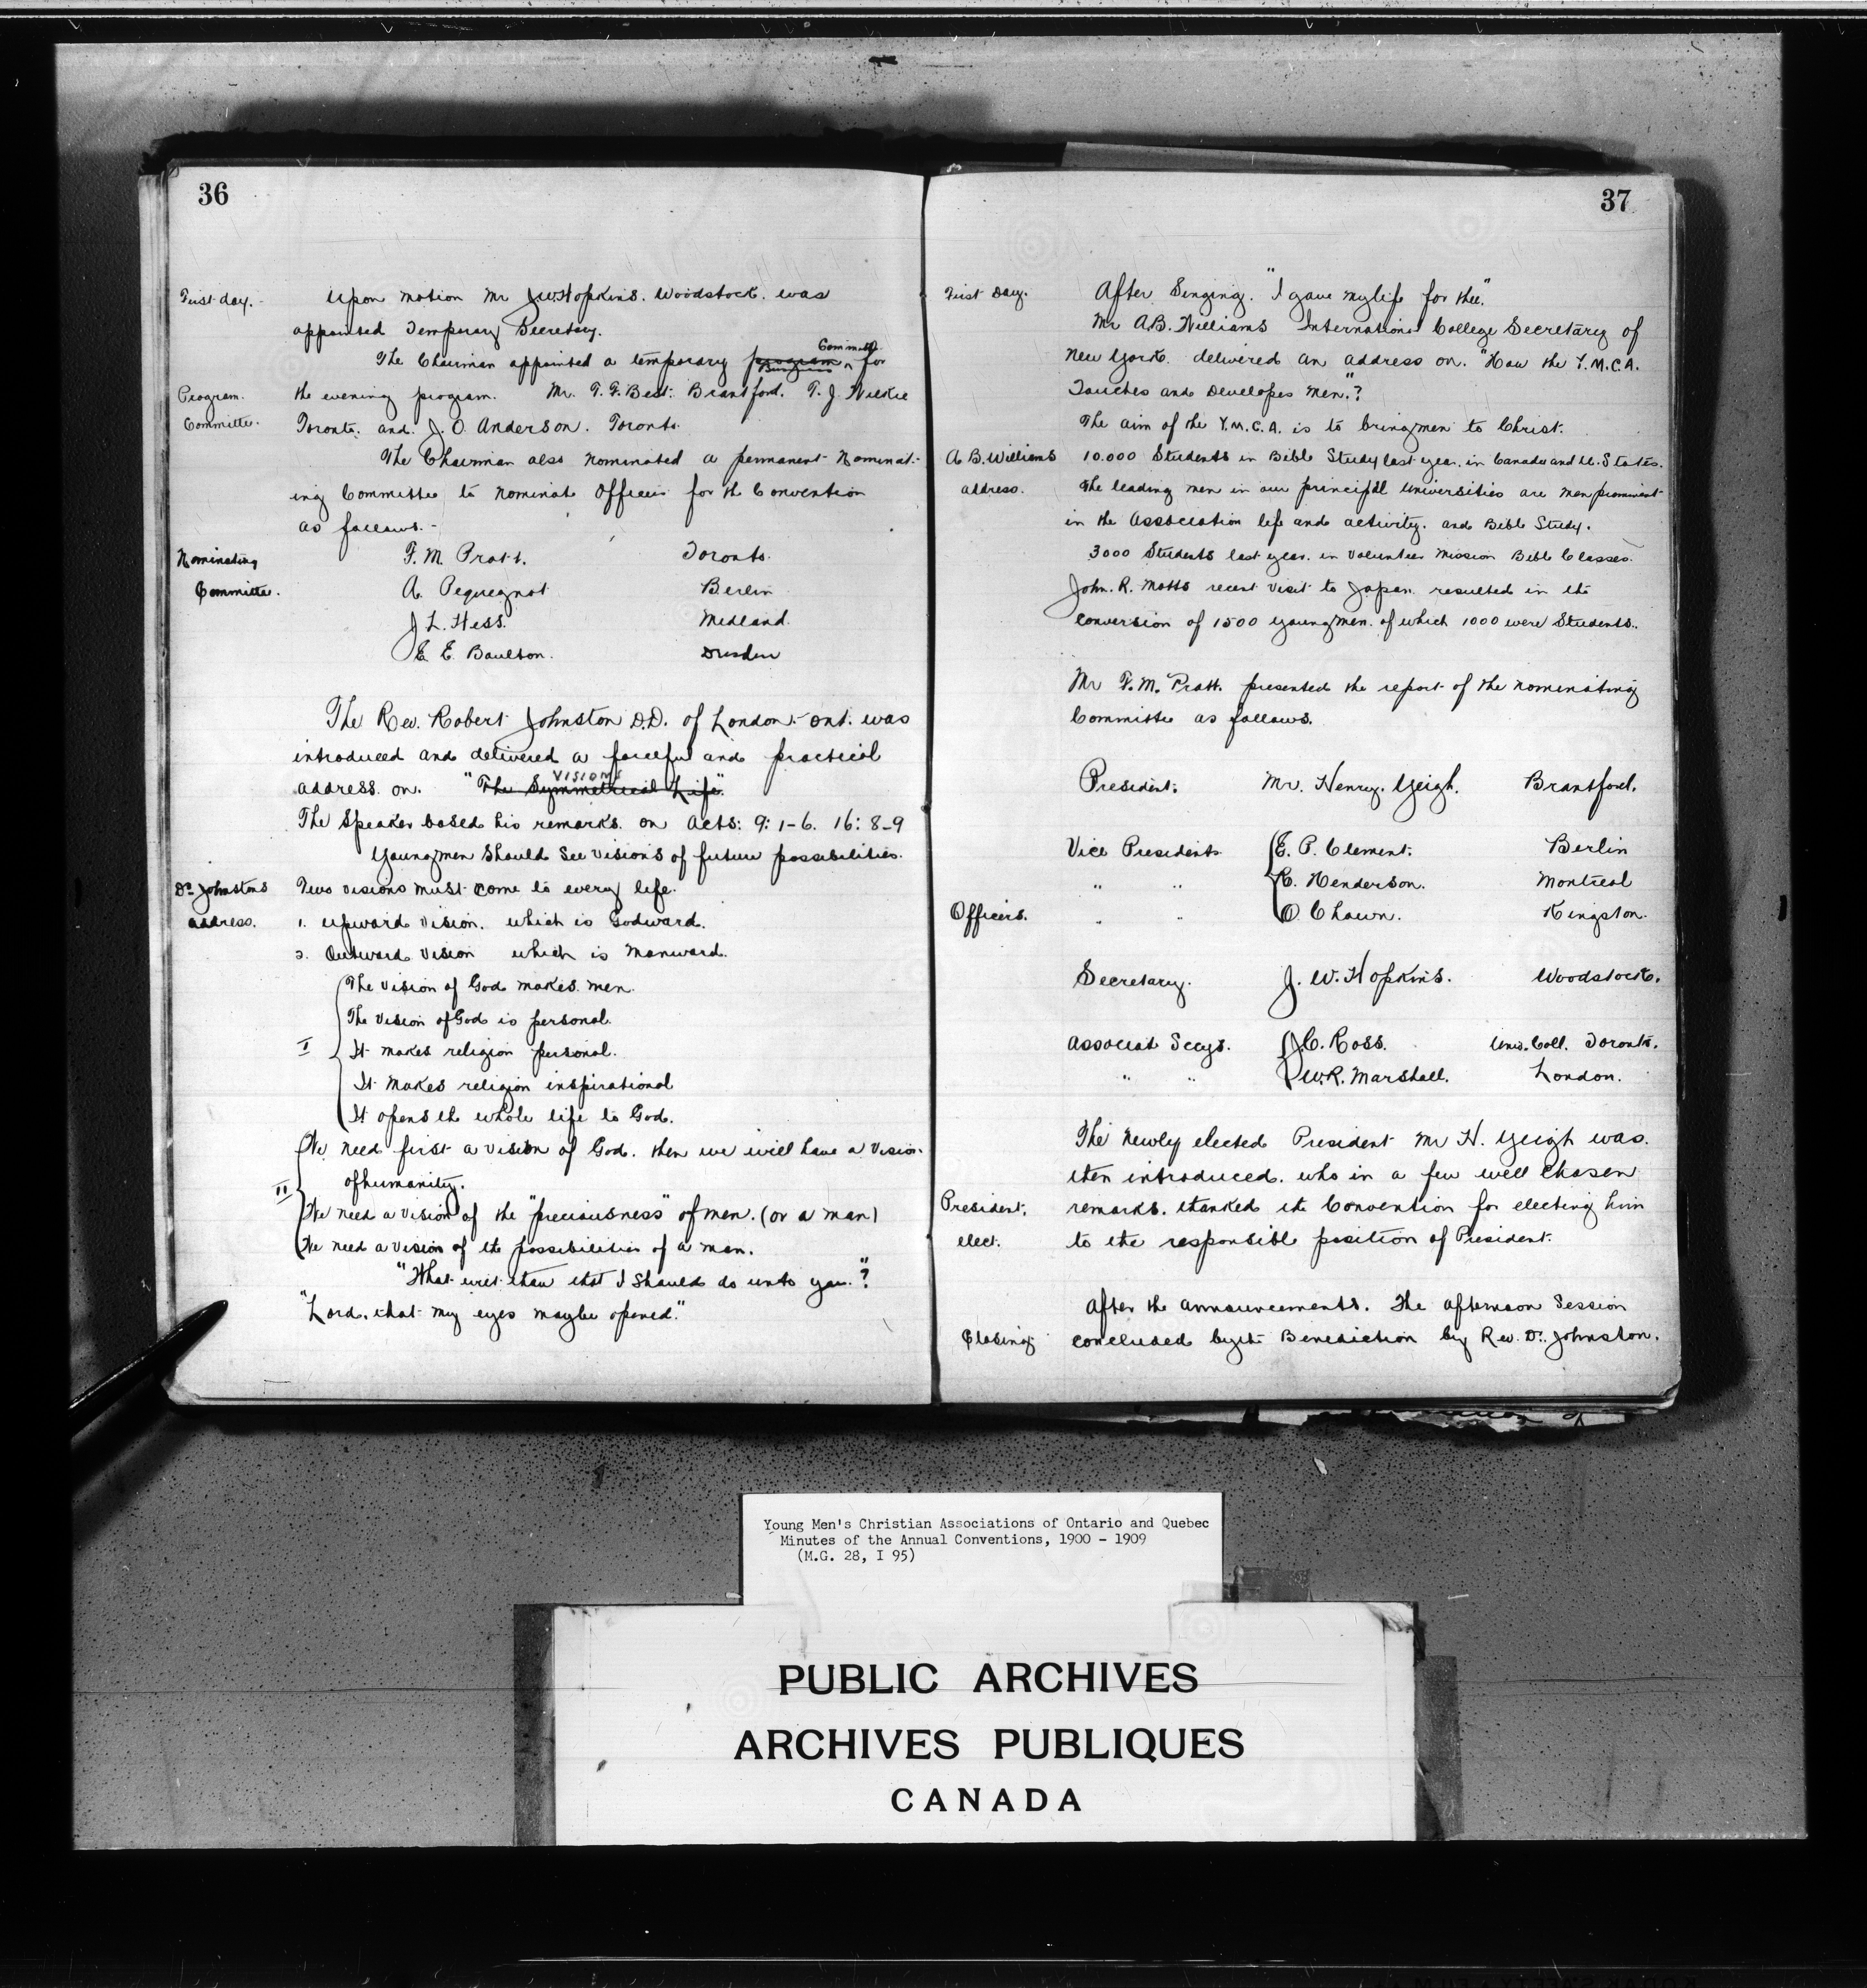 36
First day.
Upon motion Mr J.W. Hopkins. Woodstock. was
appointed Temporary Secretary.
The Chairman appointed a temporary program Committe for
Program.
Committe.
the evening program. Mr. T. F. Best. Brantford. T. J. Wilkie
Toronto. and. J. O. Anderson. Toronto.
The Chairman also nominated a permanent Nominat-
ing Committee to nominate Officers for the Convention
as follows.-
Nominating
Committe.
F. M. Pratt. Toronto.
A. Pequegnat Berlin
J L. Hess. Midland.
E. E. Boulton. Dresden
The Rev. Robert Johnston D.D. of London. Ont. was
introduced and delivered a forceful and practical
address on. "The Symmetrical Life."
VISIONS
The Speaker based his remarks. on Acts: 9: 1-6. 16: 8-9
Young men should see visions of future possibilities.
Dr Johnstons
address.
Two visions must come to every life.
1. upward vision. which is Godward.
2. Outward vision which is Manward.
I
The vision of God makes men.
The vision of God is personal.
It makes religion personal.
It makes religion inspirational
It opens the whole life to God.
II
We need first a vision of God. then we will have a vision
of humanity.
We need a vision of the "preciousness" of men. (or a man)
We need a vision of the possibilities of a man.
"What wilt thou that I should do unto you."?
"Lord, that my eyes maybe opened."
37
First Day.
After Singing. "I gave my life for thee."
Mr A.B. Williams International College Secretary of
New York. delivered an address on. "How the Y.M.C.A.
Touches and Developes Men."?
The aim of the Y.M.C.A. is to bring men to Christ.
A B. Williams
address.
10.000 Students in Bible Study last year. in Canada and U. States.
The leading men in our principal universities are men prominent
in the Association life and activity. and Bible Study.
3000 Students last year. in Volunteer Mission Bible Classes.
John. R. Motts recent visit to Japan resulted in the
conversion of 1500 young men. of which 1000 were Students.
Mr F. M. Pratt. presented the report of the nominating
Committee as follows.
Officers.
President. Mr. Henry. Yeigh. Brantford.
Vice Presidents E. P. Clement. Berlin
" " C. Henderson. Montreal
" " O. Chown. Kingston.
Secretary. J. W. Hopkins. Woodstock.
Associate Secys. J.C. Ross. Univ. Coll. Toronto.
" " W.R. Marshall. London.
The newly elected President Mr H. Yeigh was.
then introduced. who in a few well chosen
President.
elect.
remarks. thanked the Convention for electing him
to the responsible position of President.
After the announcements. The afternoon Session
Closing
concluded by the Benediction by Rev. Dr. Johnston.
Young Men's Christian Associations of Ontario and Quebec
Minutes of the Annual Conventions, 1900 - 1909
(M.G. 28, I 95)
PUBLIC ARCHIVES
ARCHIVES PUBLIQUES
CANADA